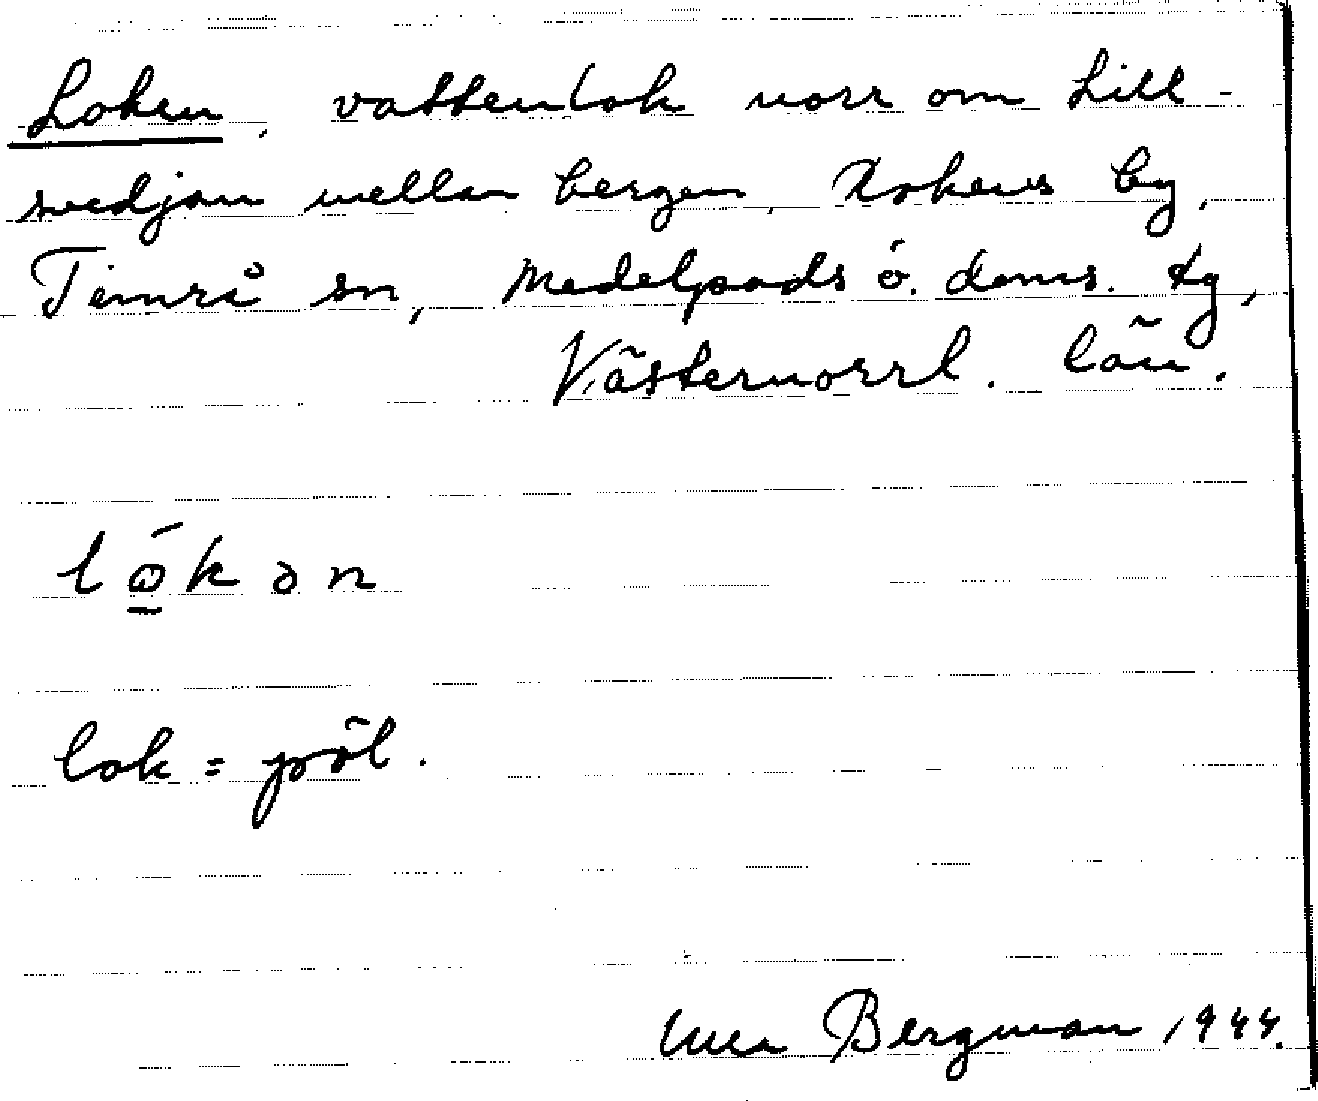 Loken, vattenlok norr om Lill-
svedjan mellan bergen, Lokens by,
Timrå sn, Medelpads ö. doms. tg,
Västernorrl. län.
lok = pöl.
Bergman 1944.